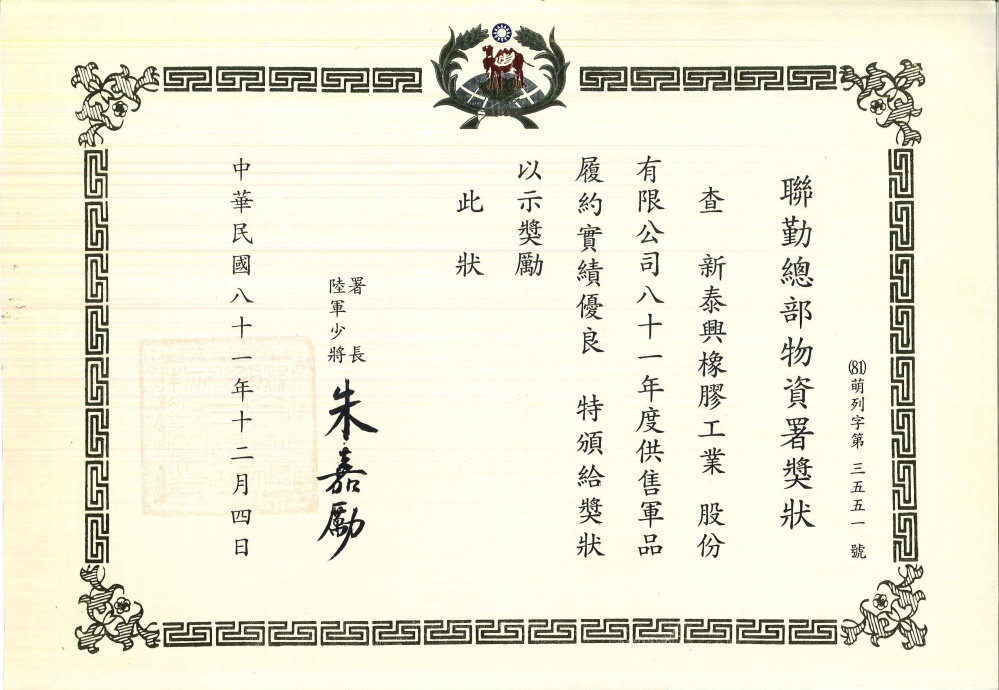 (81)萌列字第 三五五一 號
聯勤總部物資署獎狀
查 新泰興橡膠工業 股份
有限公司八十一年度供售軍品
履約實績優良 特頒給獎狀
以示獎勵
此狀
署長
陸軍少將
朱嘉勵
中華民國八十一年十二月四日